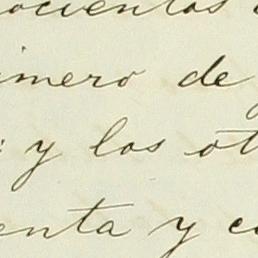 ocientos
imero de
y los ot
enta y c